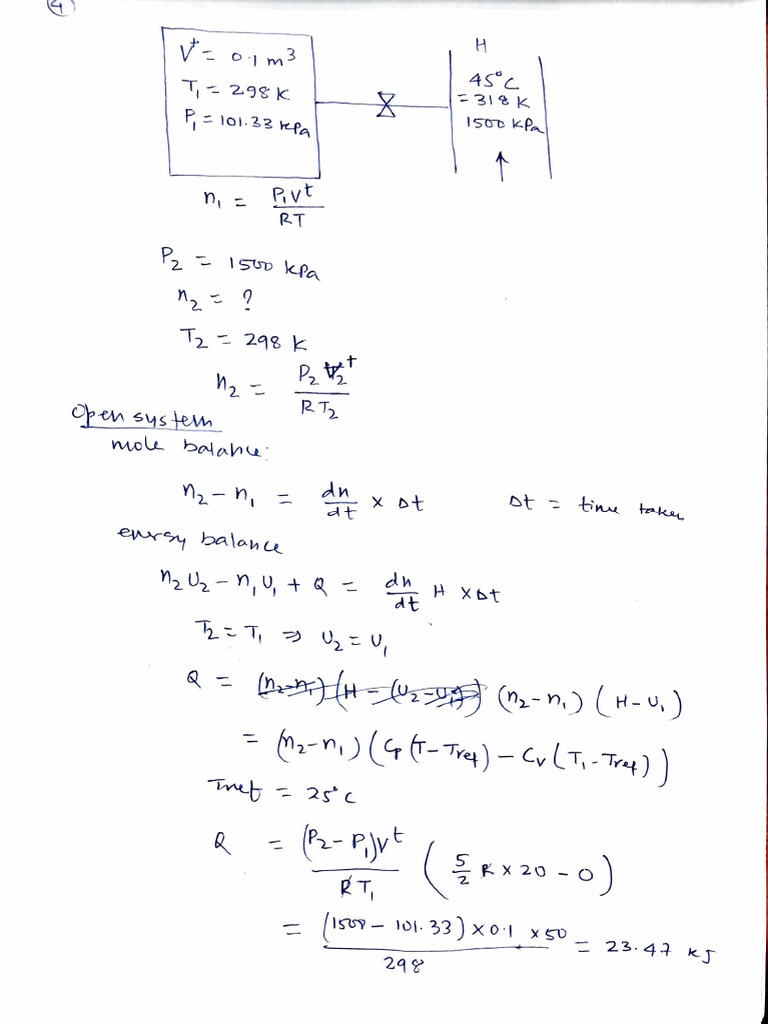 4
Vᵗ = 0.1 m³
T₁ = 298 K
P₁ = 101.33 kPa
H
45°C
= 318 K
1500 kPa
n₁ = P₁Vᵗ / RT
P₂ = 1500 kPa
n₂ = ?
T₂ = 298 K
n₂ = P₂ V₂ᵗ / RT₂
Open system
mole balance:
n₂ - n₁ = dn/dt × Δt Δt = time taken
energy balance
n₂U₂ - n₁U₁ + Q = dn/dt H × Δt
T₂ = T₁ ⇒ U₂ = U₁
Q = (n₂-n₁)(H - (U₂-U₁)) (n₂-n₁)(H-U₁)
= (n₂-n₁)(Cp(T-Tref) - Cv(T₁-Tref))
Tref = 25°C
Q = (P₂-P₁)Vᵗ / RT₁ (5/2 R × 20 - 0)
= (1500 - 101.33) × 0.1 × 50 / 298 = 23.47 kJ